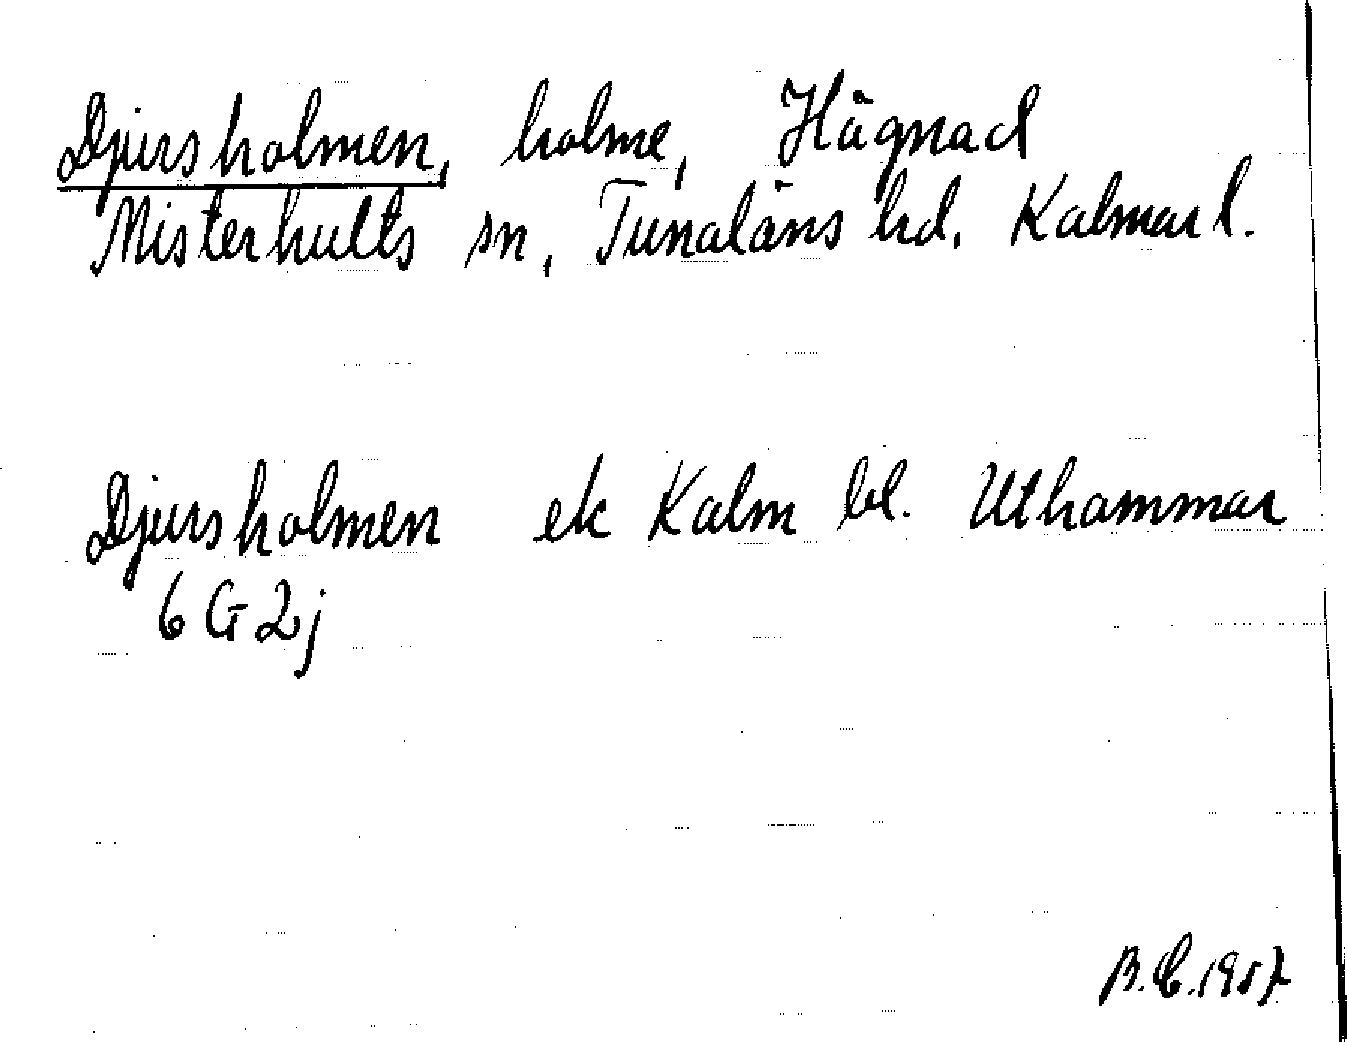 Djursholmen, holme, Hägnad
Misterhults sn, Tunaläns hd. Kalmar l.
Djursholmen ek Kalm bl. Uthammar
6 G 2j
B.E. 1957